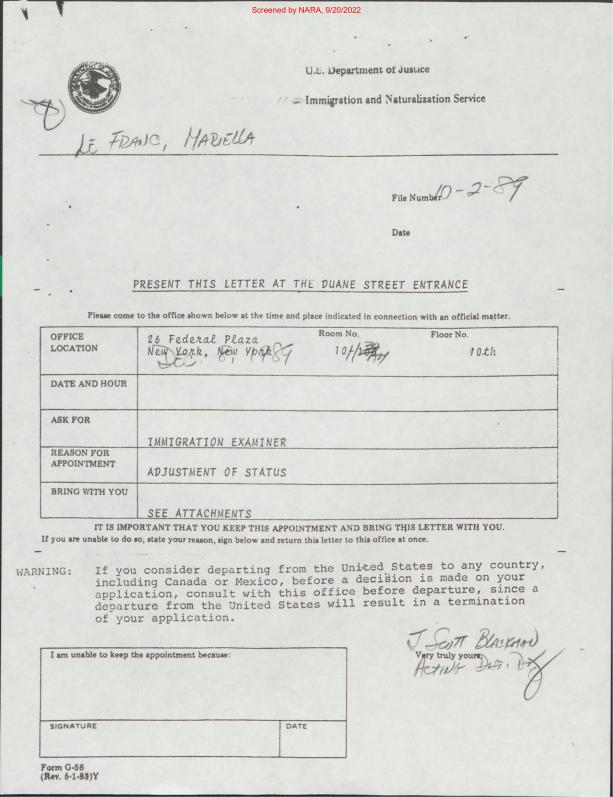 Screened by NARA, 9/20/2022
U.S. Department of Justice
Immigration and Naturalization Service
LE FRANC, MARIELLA
File Number 10-2-89
Date
PRESENT THIS LETTER AT THE DUANE STREET ENTRANCE
Please come to the office shown below at the time and place indicated in connection with an official matter.
OFFICE LOCATION
26 Federal Plaza Room No. Floor No.
New York, New York 10th
Dec. 8, 1989
DATE AND HOUR
ASK FOR
IMMIGRATION EXAMINER
REASON FOR APPOINTMENT
ADJUSTMENT OF STATUS
BRING WITH YOU
SEE ATTACHMENTS
IT IS IMPORTANT THAT YOU KEEP THIS APPOINTMENT AND BRING THIS LETTER WITH YOU.
If you are unable to do so, state your reason, sign below and return this letter to this office at once.
WARNING: If you consider departing from the United States to any country,
including Canada or Mexico, before a decision is made on your
application, consult with this office before departure, since a
departure from the United States will result in a termination
of your application.
J Scott Blackman
Very truly yours,
Acting Dist. Dir
I am unable to keep the appointment because:
SIGNATURE DATE
Form G-56
(Rev. 5-1-83)Y